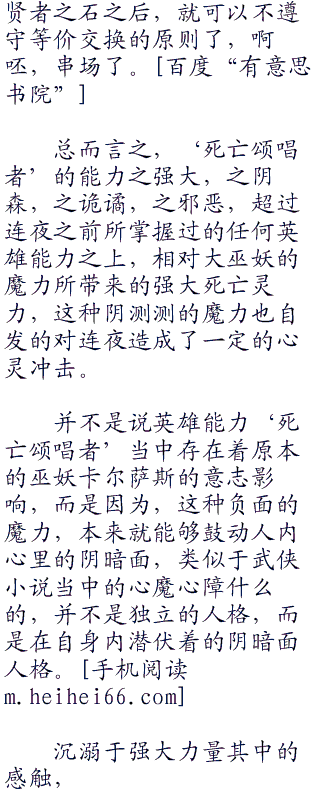 贤者之石之后，就可以不遵
守等价交换的原则了，啊
呸，串场了。[百度“有意思
书院”]
总而言之，‘死亡颂唱
者’的能力之强大，之阴
森，之诡谲，之邪恶，超过
连夜之前所掌握过的任何英
雄能力之上，相对大巫妖的
魔力所带来的强大死亡灵
力，这种阴测测的魔力也自
发的对连夜造成了一定的心
灵冲击。
并不是说英雄能力‘死
亡颂唱者’当中存在着原本
的巫妖卡尔萨斯的意志影
响，而是因为，这种负面的
魔力，本来就能够鼓动人内
心里的阴暗面，类似于武侠
小说当中的心魔心障什么
的，并不是独立的人格，而
是在自身内潜伏着的阴暗面
人格。[手机阅读
m.heihei66.com]
沉溺于强大力量其中的
感触，